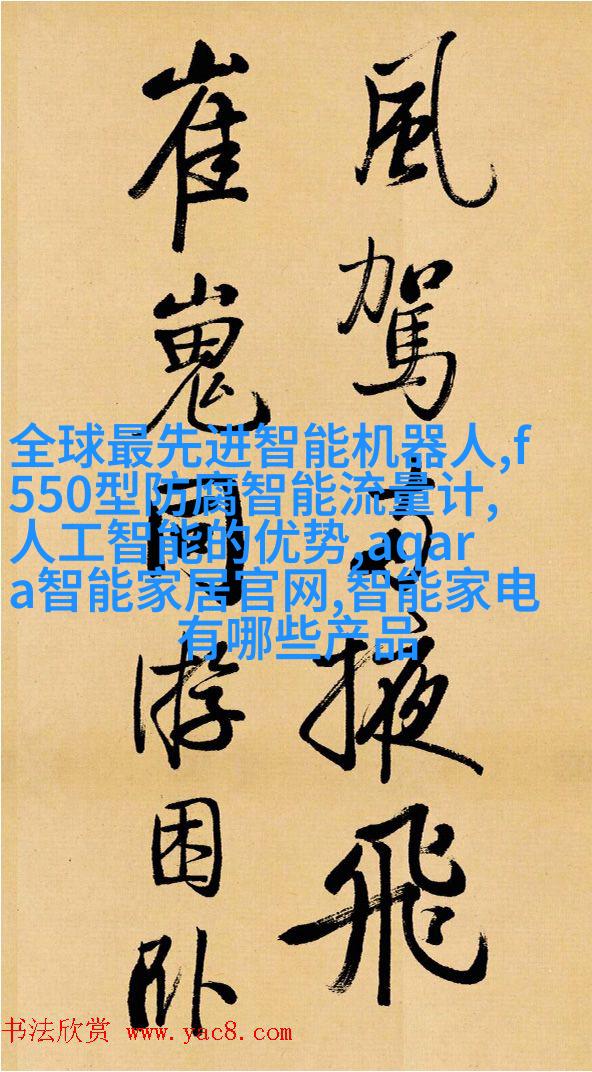 風駕掖飛
崔嵬同游困卧
全球最先进智能机器人,f
550型防腐智能流量计,
人工智能的优势,aqar
a智能家居官网,智能家电
有哪些产品
书法欣赏 www.yac8.com